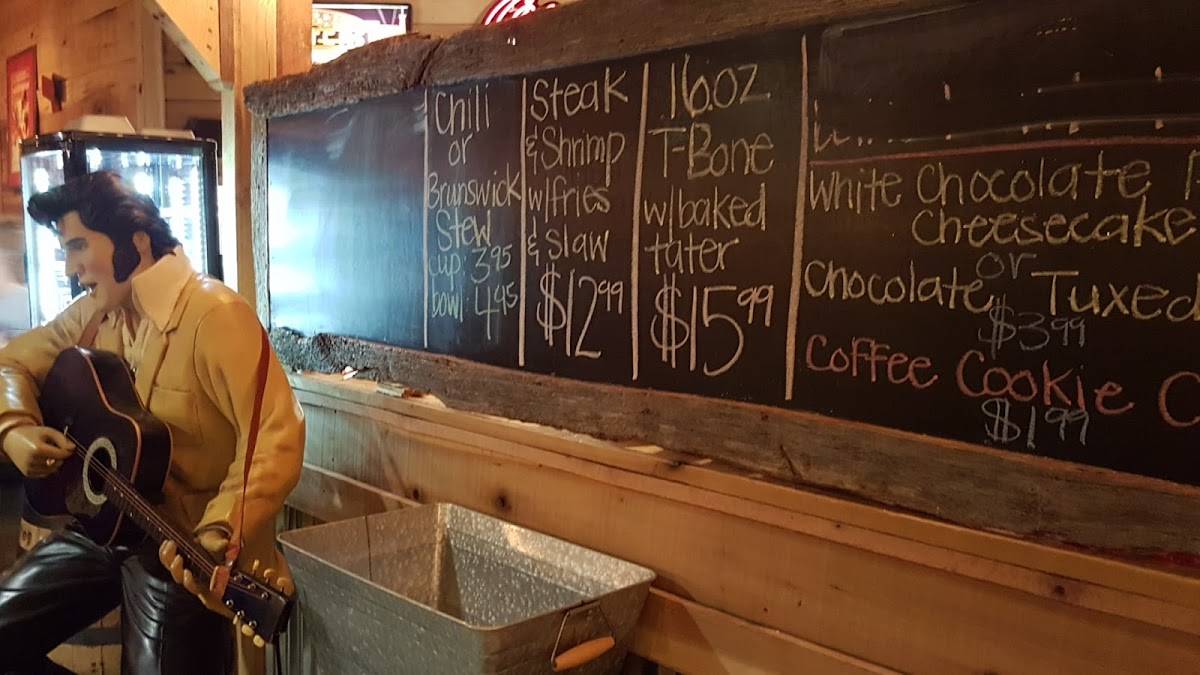 Chili
or
Brunswick
Stew
cup 3.95
bowl 4.95
Steak
& Shrimp
w/fries
& slaw
$12.99
16oz
T-Bone
w/baked
tater
$15.99
White Chocolate
Cheesecake
or
Chocolate Tuxed
$3.99
Coffee Cookie
$1.99